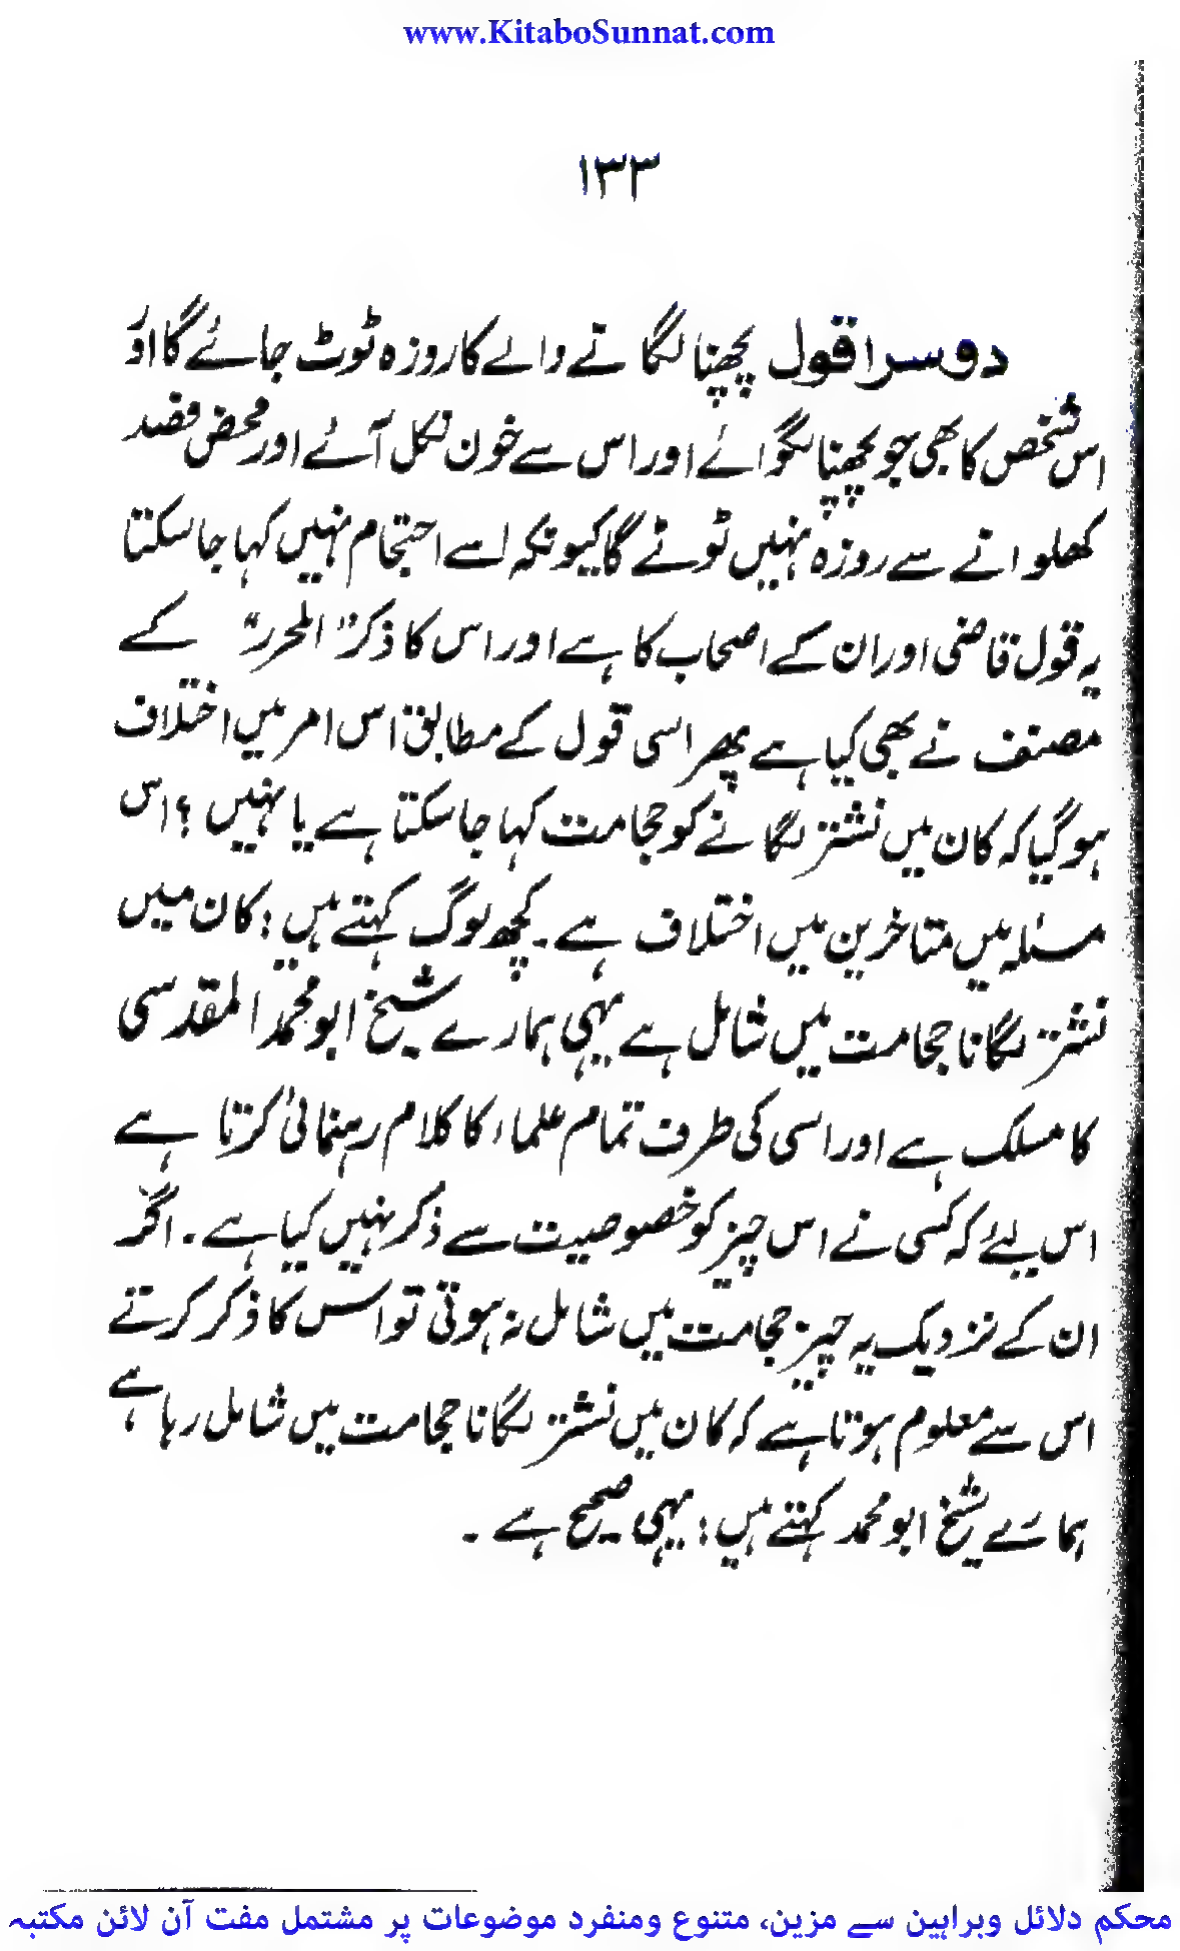 www.KitaboSunnat.com
۱۳۳
دوسرا قول پچھنا لگانے والے کا روزہ ٹوٹ جائے گا اور
اس شخص کا بھی جو پچھنا لگوائے اور اس سے خون نکل آئے اور محض فصد
کھلوانے سے روزہ نہیں ٹوٹے گا کیونکہ اسے احتجام نہیں کہا جا سکتا
یہ قول قاضی اور ان کے اصحاب کا ہے اور اس کا ذکر "المحرر" کے
مصنف نے بھی کیا ہے پھر اسی قول کے مطابق اس امر میں اختلاف
ہو گیا کہ کان میں نشتر لگانے کو حجامت کہا جا سکتا ہے یا نہیں ؟ اس
مسئلہ میں متاخرین میں اختلاف ہے ۔ کچھ لوگ کہتے ہیں : کان میں
نشتر لگانا حجامت میں شامل ہے یہی ہمارے شیخ ابو محمد المقدسی
کا مسلک ہے اور اسی کی طرف تمام علماء کا کلام رہنمائی کرتا ہے
اس لیئے کہ کسی نے اس چیز کو خصوصیت سے ذکر نہیں کیا ہے ۔ اگر
ان کے نزدیک یہ چیز حجامت میں شامل نہ ہوتی تو اس کا ذکر کرتے
اس سے معلوم ہوتا ہے کہ کان میں نشتر لگانا حجامت میں شامل رہا ہے
ہمارے شیخ ابو محمد کہتے ہیں : یہی صحیح ہے ۔
محکم دلائل وبراہین سے مزین، متنوع ومنفرد موضوعات پر مشتمل مفت آن لائن مکتبہ